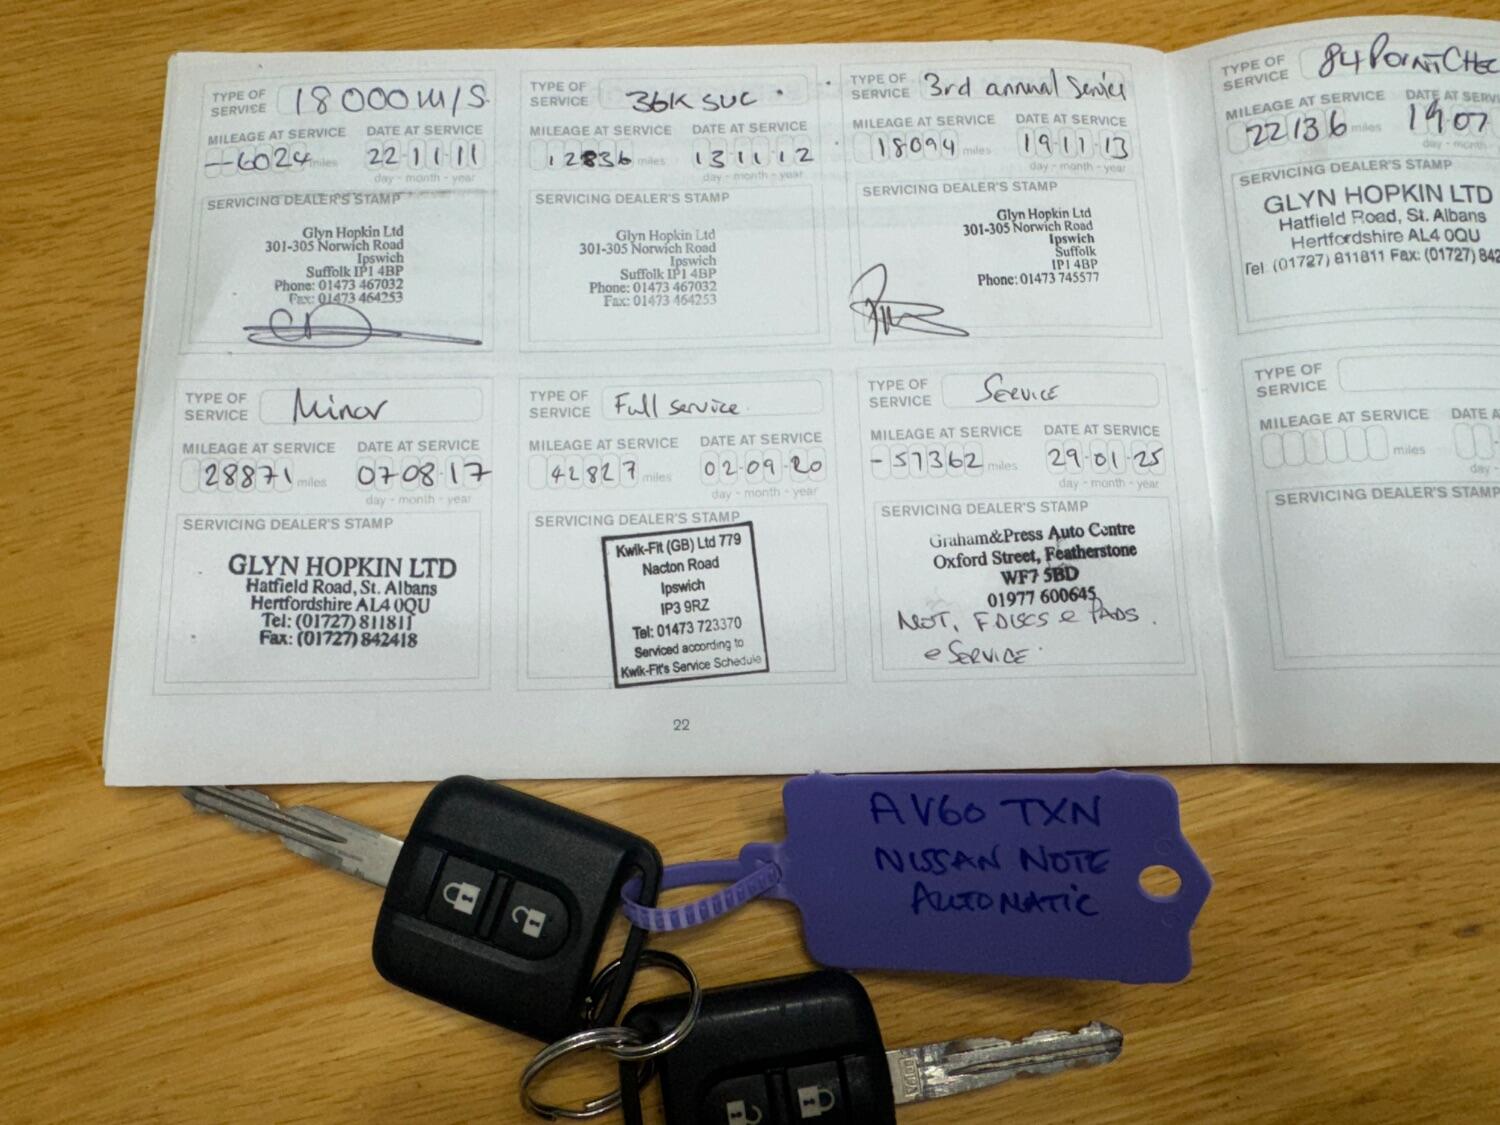 TYPE OF SERVICE 18000 M/S.
MILEAGE AT SERVICE DATE AT SERVICE
--6024 miles 22-11-11
day - month - year
SERVICING DEALER'S STAMP
Glyn Hopkin Ltd
301-305 Norwich Road
Ipswich
Suffolk IP1 4BP
Phone: 01473 467032
Fax: 01473 464253
TYPE OF SERVICE 36K SVC
MILEAGE AT SERVICE DATE AT SERVICE
12836 miles 13 11 12
day - month - year
SERVICING DEALER'S STAMP
Glyn Hopkin Ltd
301-305 Norwich Road
Ipswich
Suffolk IP1 4BP
Phone: 01473 467032
Fax: 01473 464253
TYPE OF SERVICE 3rd annual Service
MILEAGE AT SERVICE DATE AT SERVICE
18094 miles 19-11-13
day - month - year
SERVICING DEALER'S STAMP
Glyn Hopkin Ltd
301-305 Norwich Road
Ipswich
Suffolk
IP1 4BP
Phone: 01473 745577
TYPE OF SERVICE Minor
MILEAGE AT SERVICE DATE AT SERVICE
28871 miles 07-08-17
day - month - year
SERVICING DEALER'S STAMP
GLYN HOPKIN LTD
Hatfield Road, St. Albans
Hertfordshire AL4 0QU
Tel: (01727) 811811
Fax: (01727) 842418
TYPE OF SERVICE Full service.
MILEAGE AT SERVICE DATE AT SERVICE
42827 miles 02-09-20
day - month - year
SERVICING DEALER'S STAMP
Kwik-Fit (GB) Ltd 779
Nacton Road
Ipswich
IP3 9RZ
Tel: 01473 723370
Serviced according to
Kwik-Fit's Service Schedule
TYPE OF SERVICE SERVICE
MILEAGE AT SERVICE DATE AT SERVICE
-57362 miles 29-01-25
day - month - year
SERVICING DEALER'S STAMP
Graham&Press Auto Centre
Oxford Street, Featherstone
WF7 5BD
01977 600645
MOT, F DISCS e PADS.
e SERVICE.
22
TYPE OF SERVICE 84 POINT CHEC
MILEAGE AT SERVICE DATE AT SERV
22136 miles 19 07
day - mont
SERVICING DEALER'S STAMP
GLYN HOPKIN LTD
Hatfield Road, St. Albans
Hertfordshire AL4 0QU
Tel: (01727) 811811 Fax: (01727) 842
TYPE OF SERVICE
MILEAGE AT SERVICE DATE A
miles
day -
SERVICING DEALER'S STAMP
AV60 TXN
NISSAN NOTE
AUTOMATIC